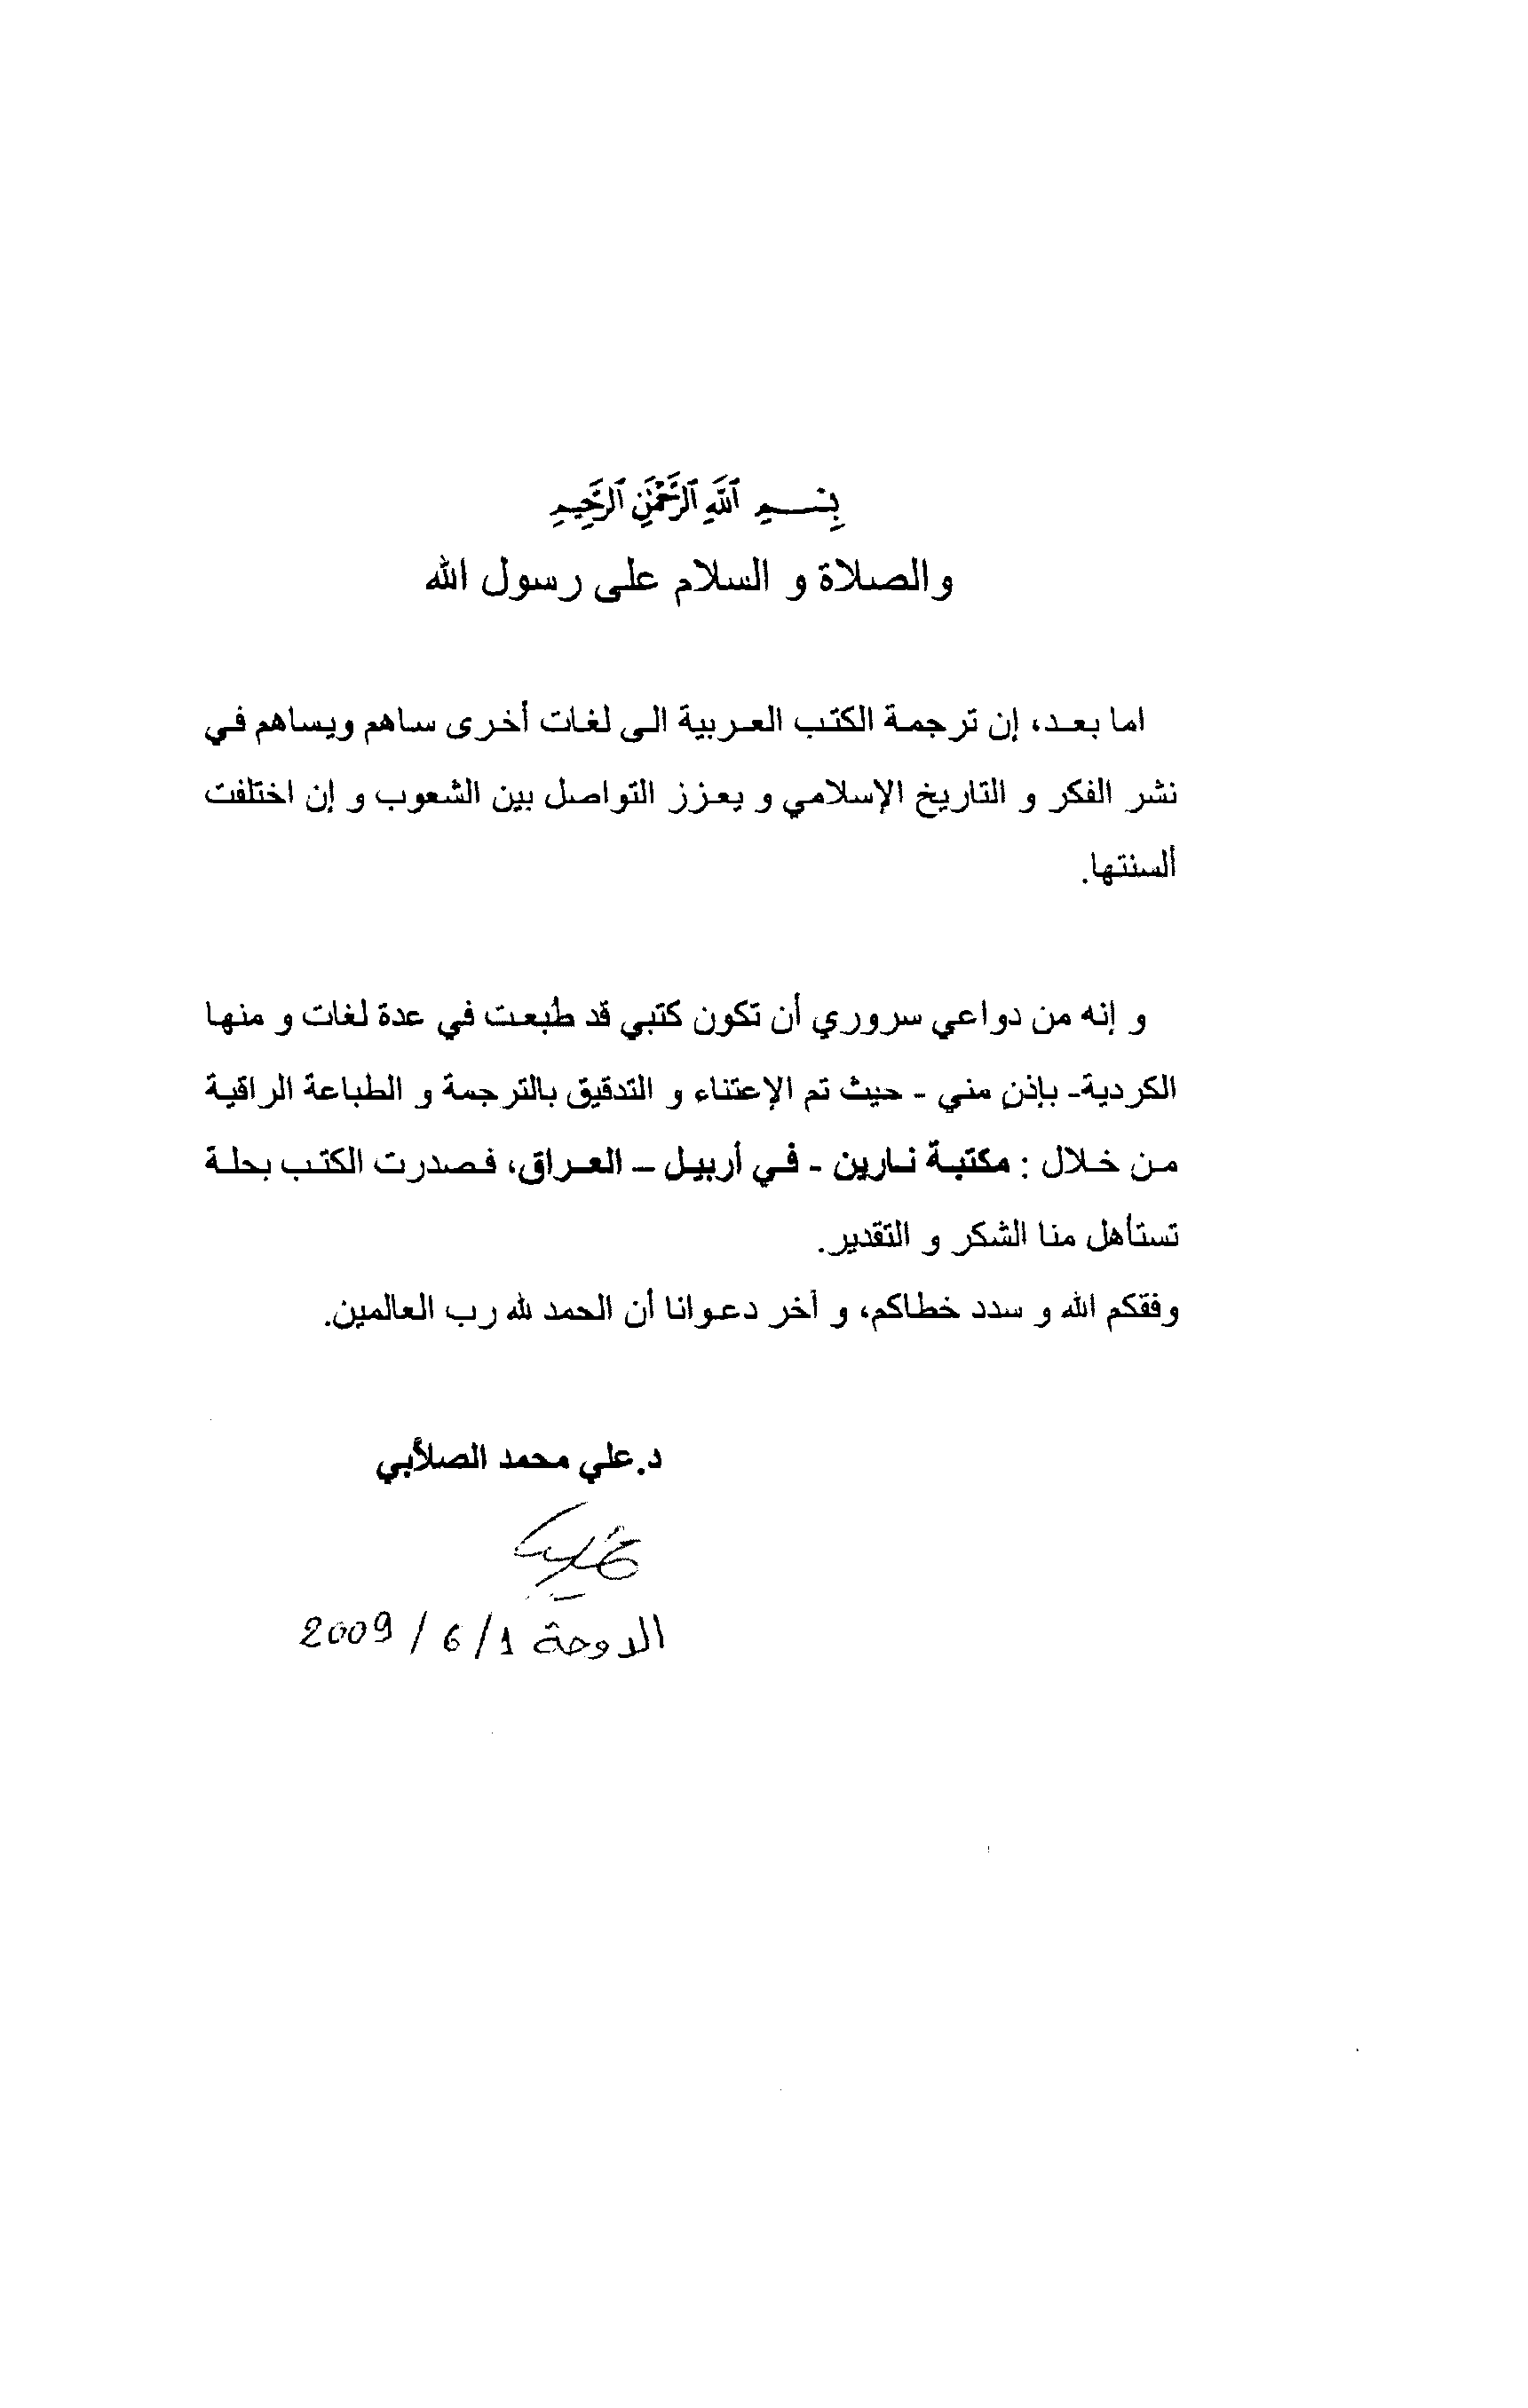 بِسْمِ ٱللَّهِ ٱلرَّحْمَٰنِ ٱلرَّحِيمِ
والصلاة و السلام على رسول الله
اما بعد، إن ترجمة الكتب العربية الى لغات أخرى ساهم ويساهم في
نشر الفكر و التاريخ الإسلامي و يعزز التواصل بين الشعوب و إن اختلفت
ألسنتها.
و إنه من دواعي سروري أن تكون كتبي قد طبعت في عدة لغات و منها
الكردية- بإذن مني - حيث تم الإعتناء و التدقيق بالترجمة و الطباعة الراقية
من خلال : مكتبة نارين - في أربيل – العراق، فصدرت الكتب بحلة
تستأهل منا الشكر و التقدير.
وفقكم الله و سدد خطاكم، و أخر دعوانا أن الحمد لله رب العالمين.
د.علي محمد الصلأبي
الدوحة 1/ 6 / 2009